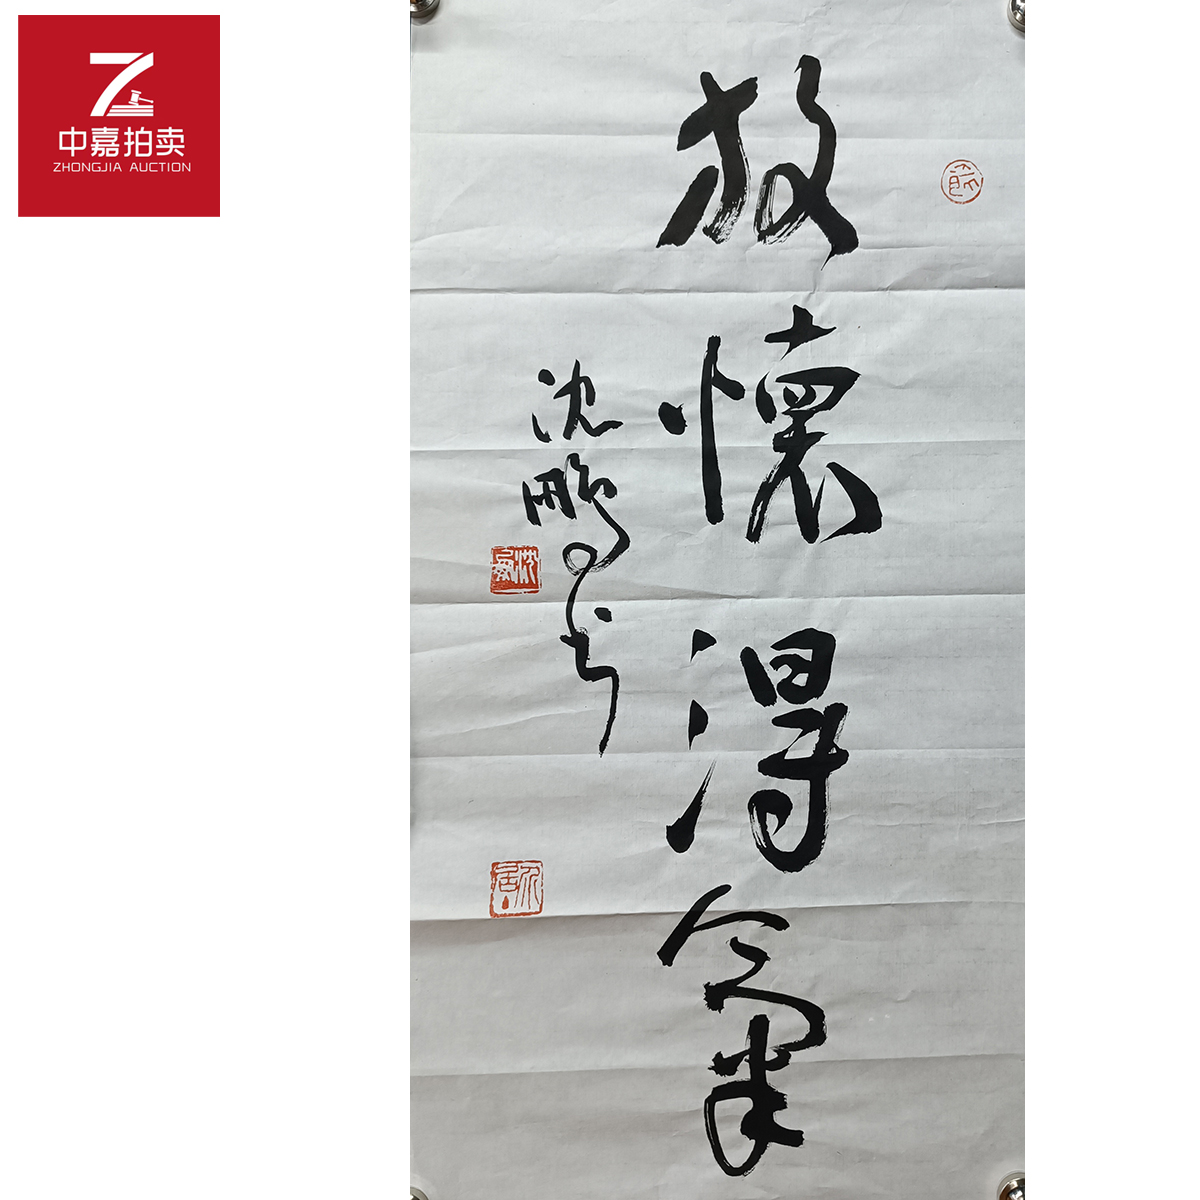 中嘉拍卖
ZHONGJIA AUCTION
放懷得氣
沈鵬书